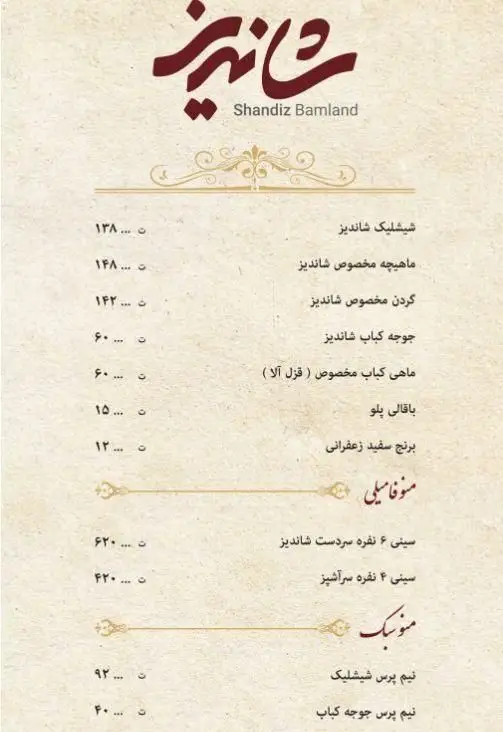 شاندیز
Shandiz Bamland
شیشلیک شاندیز ۱۳۸ ... ت
ماهیچه مخصوص شاندیز ۱۴۸ ... ت
گردن مخصوص شاندیز ۱۴۲ ... ت
جوجه کباب شاندیز ۶۰ ... ت
ماهی کباب مخصوص ( قزل آلا ) ۶۰ ... ت
باقالی پلو ۱۵ ... ت
برنج سفید زعفرانی ۱۲ ... ت
منو فامیلی
سینی ۶ نفره سردست شاندیز ۶۲۰ ... ت
سینی ۴ نفره سرآشپز ۴۲۰ ... ت
منو سبک
نیم پرس شیشلیک ۹۲ ... ت
نیم پرس جوجه کباب ۴۰ ... ت